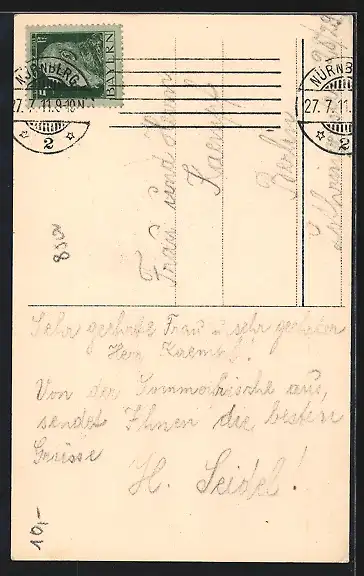 BAYERN
NÜRNBERG
27. 7. 11. 9-10 N
2
NÜRNBERG
27. 7. 11
2
Frau und Herrn
Kaempf
Berlin
Sehr geehrte Frau u. sehr geehrter
Herr Kaempf!
Von der Sommerfrische aus,
sendet Ihnen die besten
Grüsse
H. Seidel!
10,-